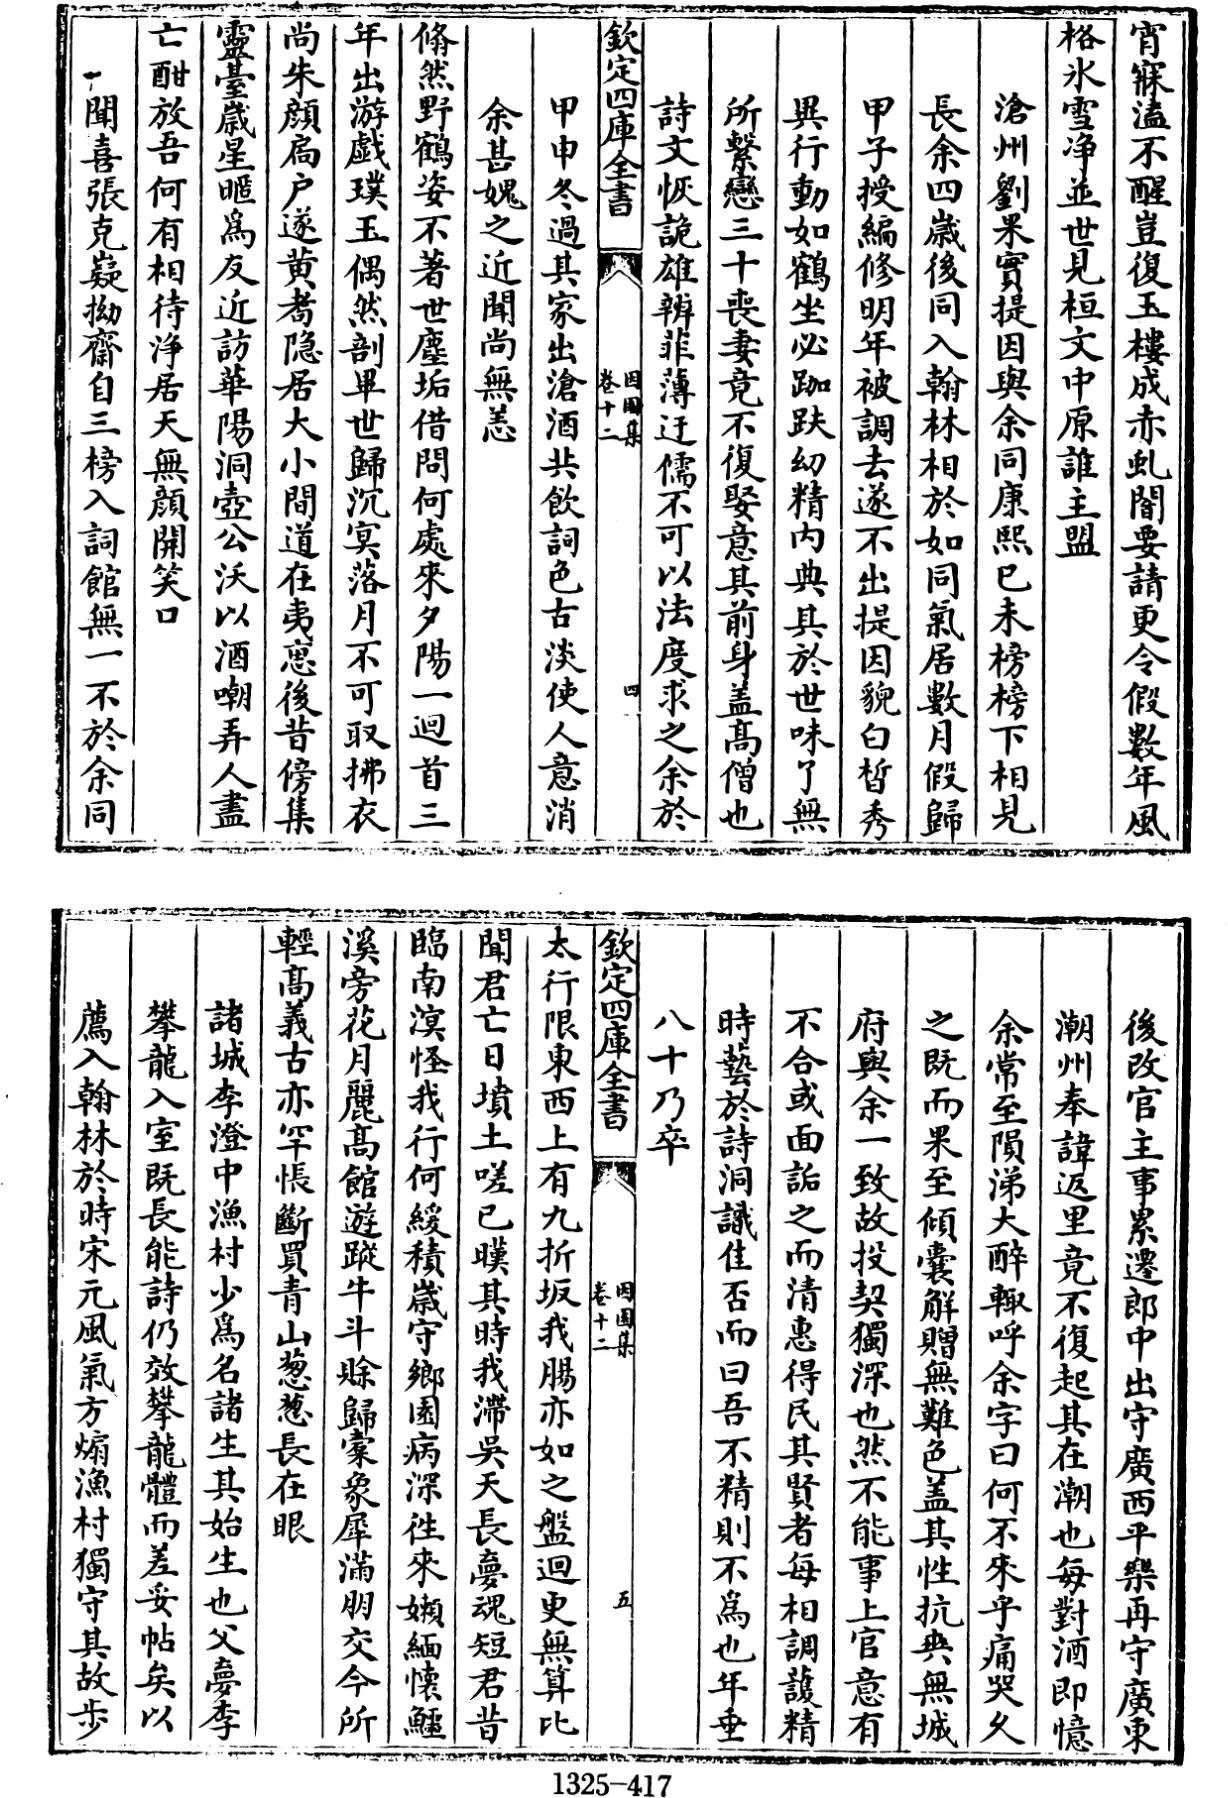 宵寐溘不醒豈復玉樓成赤虬闇要請更令假數年風
格氷雪净並世見桓文中原誰主盟
滄州劉果實提因與余同康熙已未榜榜下相見
長余四歲後同入翰林相於如同氣居數月假歸
甲子授編修明年被調去遂不出提因貌白晳秀
異行動如鶴坐必跏趺幼精内典其於世味了無
所繫戀三十喪妻竟不復娶意其前身盖髙僧也
詩文恢詭雄辨菲薄迂儒不可以法度求之余於
欽定四庫全書
因園集
卷十二
四
甲申冬過其家出滄酒共飲詞色古淡使人意消
余甚媿之近聞尚無恙
翛然野鶴姿不著世塵垢借問何處來夕陽一迴首三
年出游戲璞玉偶然剖畢世歸沉冥落月不可取拂衣
尚朱顔扃户遂黄耉隐居大小間道在夷惠後昔傍集
靈臺歲星暱爲友近訪華陽洞壺公沃以酒嘲弄人盡
亡酣放吾何有相待浄居天無顔開笑口
聞喜張克嶷拗齋自三榜入詞館無一不於余同
後改官主事累遷郎中出守廣西平樂再守廣東
潮州奉諱返里竟不復起其在潮也每對酒即憶
余常至隕涕大醉輙呼余字曰何不來乎痛哭久
之既而果至傾囊解贈無難色盖其性抗爽無城
府與余一致故投契獨深也然不能事上官意有
不合或面詬之而清惠得民其賢者每相調護精
時藝於詩洞識佳否而曰吾不精則不爲也年垂
八十乃卒
欽定四庫全書
因園集
卷十二
五
太行限東西上有九折坂我腸亦如之盤迴更無算比
聞君亡日墳土嗟已暵其時我滯吳天長夢魂短君昔
臨南溟怪我行何緩積歲守鄉園病深徃來嬾緬懷鱷
溪旁花月麗髙館遊蹤牛斗賒歸橐象犀滿朋交今所
輕髙義古亦罕悵斷買青山葱葱長在眼
諸城李澄中漁村少爲名諸生其始生也父夢李
攀龍入室既長能詩仍效攀龍體而差妥帖矣以
薦入翰林於時宋元風氣方煽漁村獨守其故步
1325-417